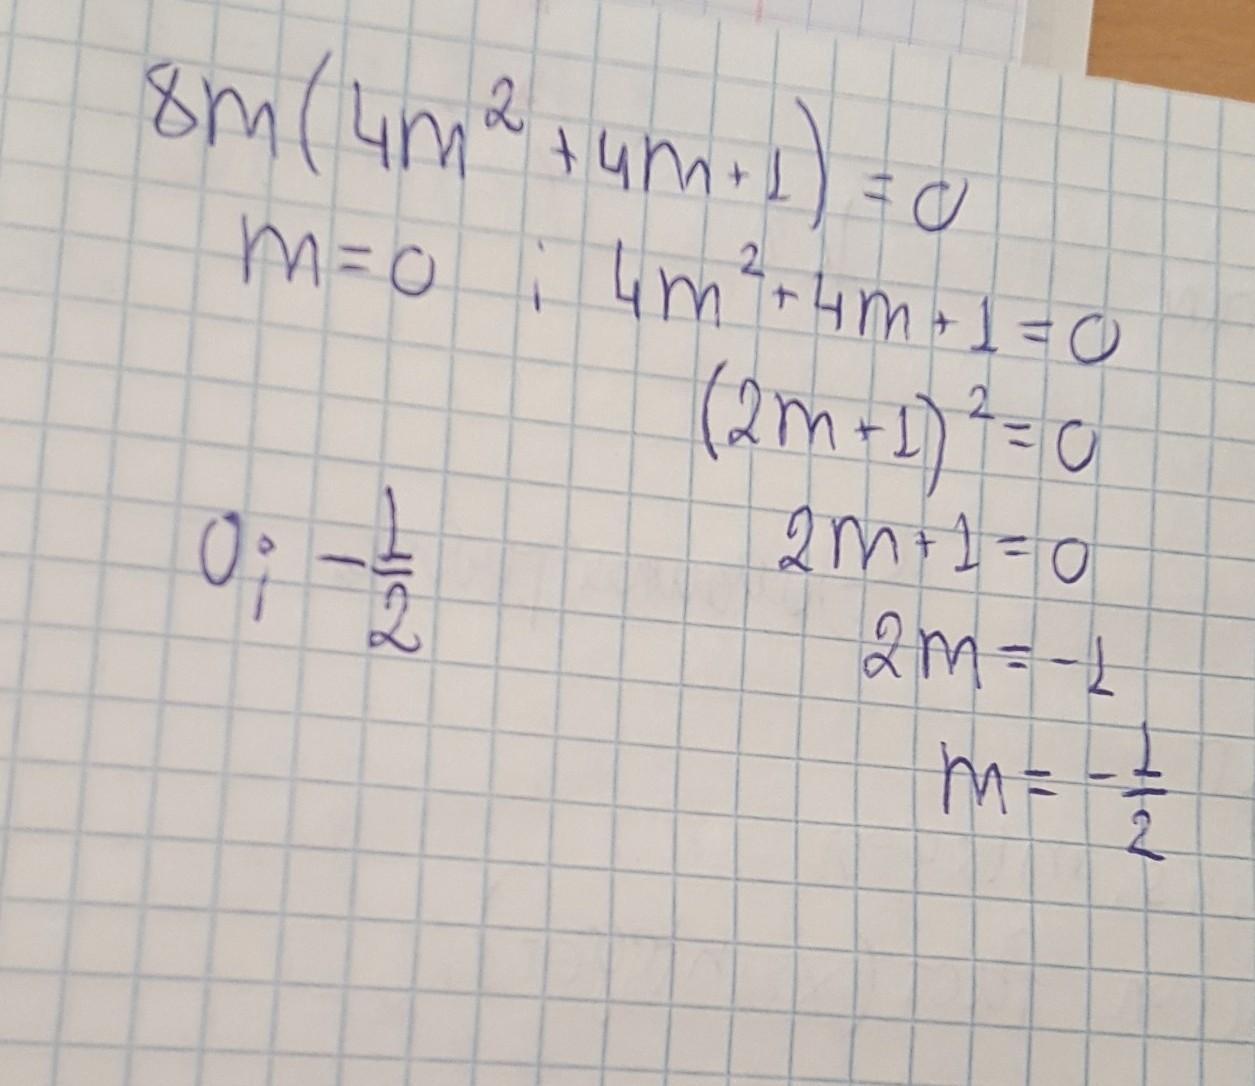 8m(4m² + 4m + 1) = 0
m = 0 ; 4m² + 4m + 1 = 0
(2m + 1)² = 0
2m + 1 = 0
0; -1/2
2m = -1
m = -1/2